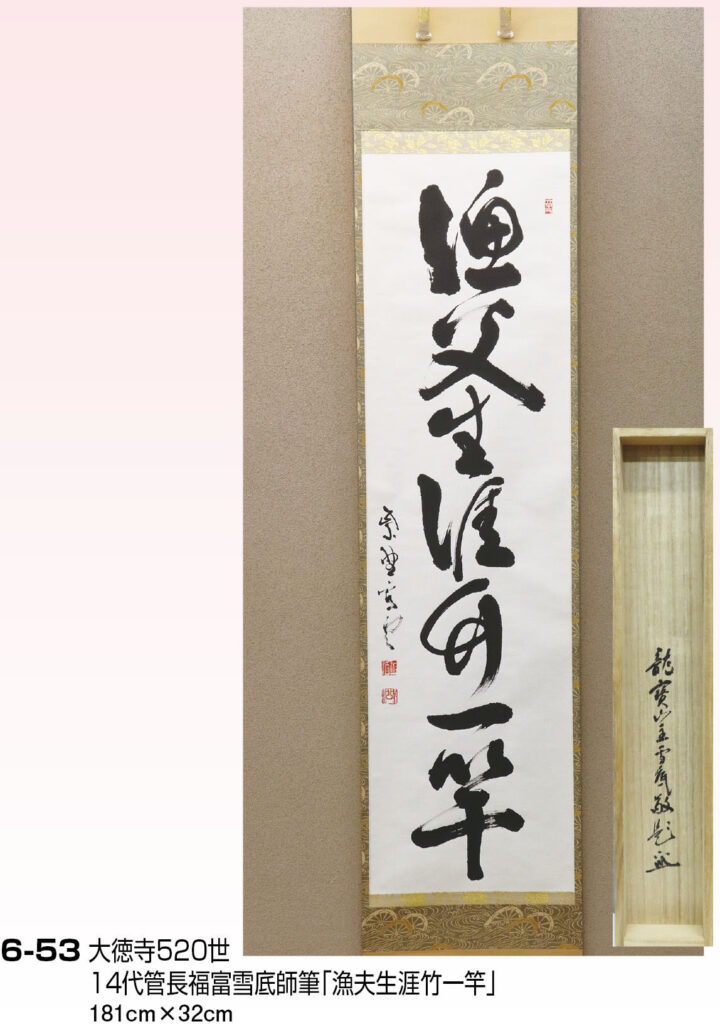 漁父生涯竹一竿
紫野雪底
龍寶山主雪底敬題
6-53 大徳寺520世
14代管長福富雪底師筆「漁夫生涯竹一竿」
181cm×32cm